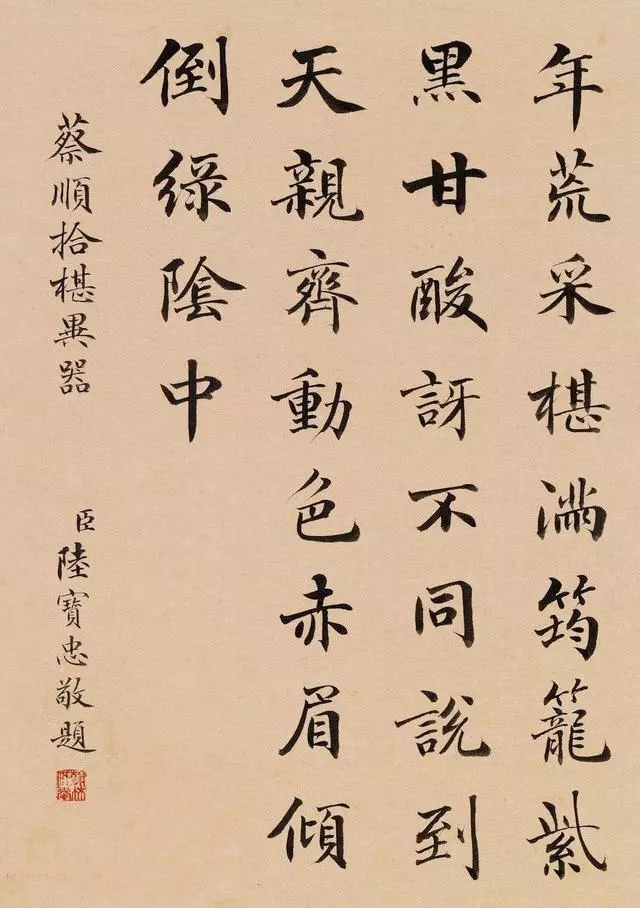 年荒采椹满筠籠紫
黒甘酸訝不同說到
天親齊動色赤眉傾
倒綠陰中
蔡順拾椹異器
臣陸寶忠敬題